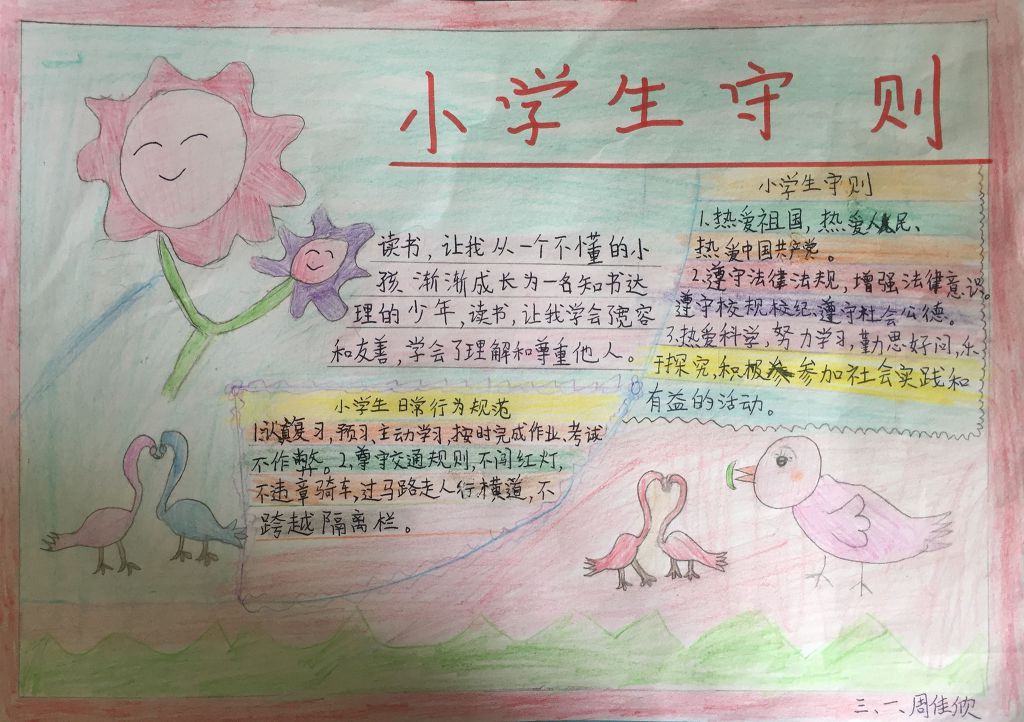 小学生守则
读书，让我从一个不懂的小
孩渐渐成长为一名知书达
理的少年，读书，让我学会了宽容
和友善，学会了理解和尊重他人。
小学生守则
1.热爱祖国，热爱人民、
热爱中国共产党。
2.遵守法律法规，增强法律意识。
遵守校规校纪、遵守社会公德。
3.热爱科学，努力学习，勤思好问，乐
于探究，积极参加社会实践和
有益的活动。
小学生日常行为规范
1.认真复习，预习、主动学习，按时完成作业、考试
不作弊。2.尊守交通规则，不闯红灯，
不违章骑车，过马路走人行横道，不
跨越隔离栏。
三、一、周佳欣